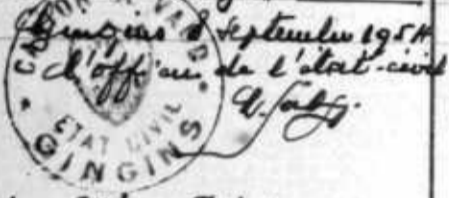 Gingins 8 Septembre 1954
L'officier de l'état-civil
CANTON DE VAUD
ETAT CIVIL
GINGINS